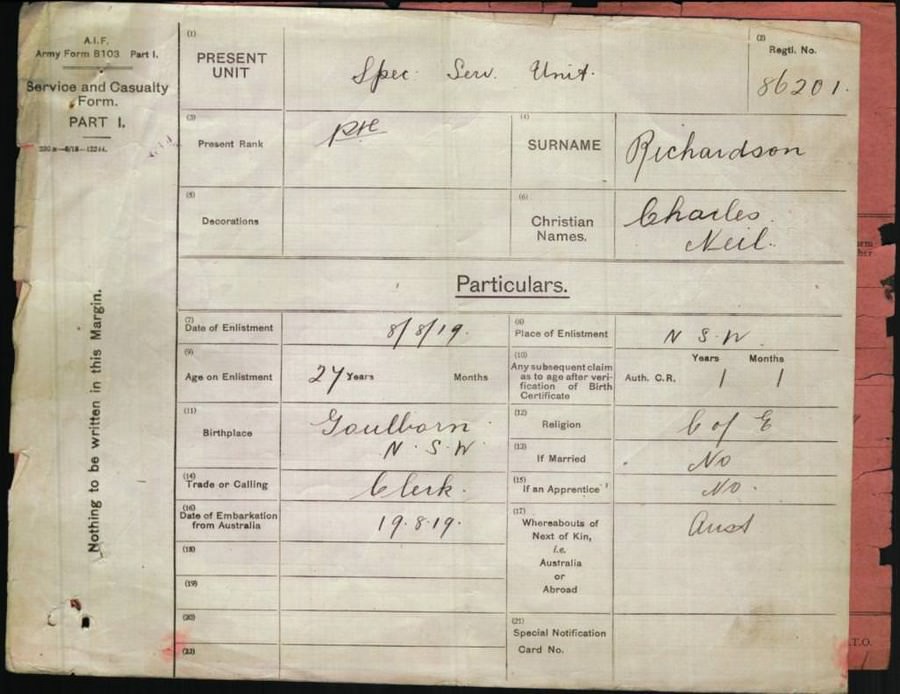 A.I.F.
Army Form B103 Part I.
Service and Casualty
Form.
PART I.
Nothing to be written in this Margin.
(1)
PRESENT
UNIT
Spec. Serv. Unit.
(2)
Regtl. No.
86201.
(3)
Present Rank
Pte
(4)
SURNAME
Richardson
(5)
Decorations
(6)
Christian
Names.
Charles
Neil.
Particulars.
(7)
Date of Enlistment
8/8/19.
(8)
Place of Enlistment
N S. W.
(9)
Age on Enlistment
27 Years Months
(10)
Any subsequent claim
as to age after veri-
fication of Birth
Certificate
Years Months
Auth. C.R.
(11)
Birthplace
Goulborn
N. S. W
(12)
Religion
C of E
(13)
If Married
No
(14)
Trade or Calling
Clerk.
(15)
If an Apprentice
No.
(16)
Date of Embarkation
from Australia
19.8.19.
(17)
Whereabouts of
Next of Kin,
i.e.
Australia
or
Abroad
Aust
(18)
(19)
(20)
(21)
Special Notification
Card No.
(22)
T.O.